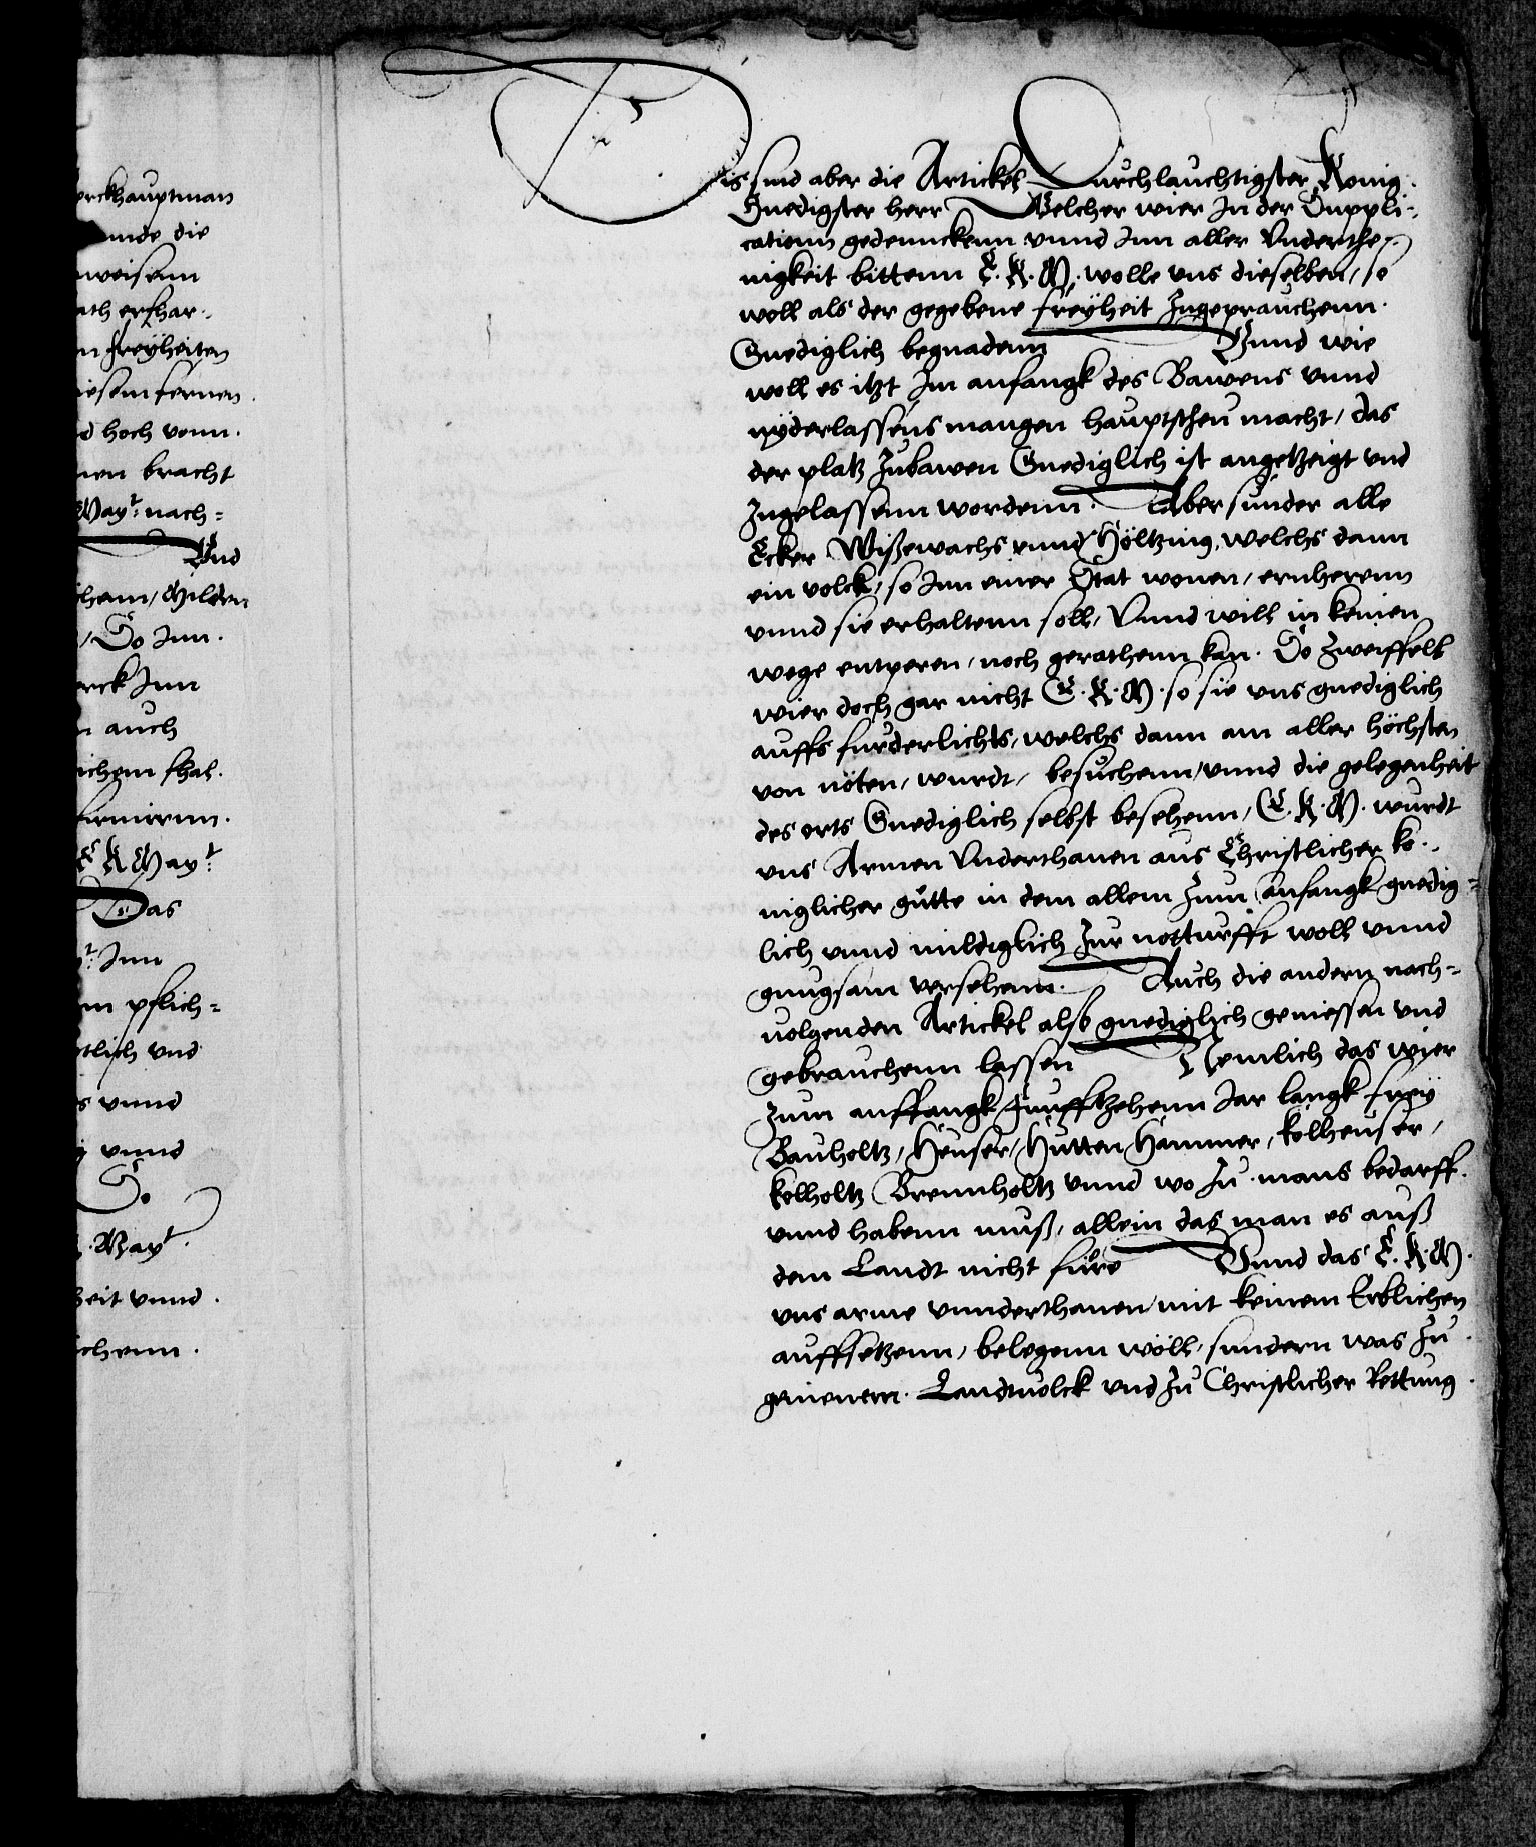 erckhauptman
unde die
weisenn
ath erfhar.
n freÿheiten
iesem fernen.
d hoch vonn.
nen bracht
May:t nach=
Vnd
hem, Mildern
, So Inn.
erck Inn
n auch
ichem fhal.
firmirnn.
E K May:t
Das
Inn
m pflich=
tlich vnd
s vnnd
g vnnd
So
. May:t.
heit vnnd.
chenn.
Dis sind aber die Artickel Durchlauchtigster Konig.
Gnedigster herr Welcher wier In der Suppli=
cationn gedennckenn vnnd Inn aller Vnderthe=
nigkeit bittenn E. K. M. wolle vns dieselben, so
woll als der gegebene freÿheit Zugeprauchenn.
Gnediglich begnadenn Vnnd wie
woll es itzt Im anfangk des Bawens vnnd
nÿderlassens mangen hauptscheu macht, das
der platz Zubawen Gnediglich ist angetzeigt vnd
Zugelassenn wordenn. Aber sunder alle
Ecker Wißewachs vnnd Höltzung, welchs dann
ein volck, so Inn einer Stat wonen, ernherenn
vnnd sie erhaltenn soll, Vnnd will in keinen
wege entperen, noch gerathenn kan. So Zweiffelt
wier doch gar nicht E. K. M. so sie vns gnediglich
auffs furderlichts, welchs dann am aller höchsten
von nöten, wurdt, besuchenn, vnnd die gelegenheit
des orts Gnediglich selbst besehenn, E. K. M. wurdt
vns Armen Vnderthanen aus Christlicher ko=
niglicher gutte in dem allem Zum anfangk gnedig=
lich vnnd mildiglich Zur notturfft woll vnnd
gnugsam versehenn. Auch die andern nach=
uolgenden Artickel also gnediglich geniessen vnd
gebrauchenn lassen Nemlich das wier
Zum anffangk funfftzehenn Jar langk freÿ
Bauholtz, Heuser, Hutten Hammer, kolheuser,
kolholtz Brennholtz vnnd wo Zu mans bedarff.
vnnd habenn muß, allein das man es auß
dem Landt nicht fure Vnnd das E. K. M.
vns arme vnnderthanen mit keinem Erblichen
auffsetzenn, belegenn wöll, sundern was Zu
gemeinem Landtuolck vnd Zu Christlicher Rettung